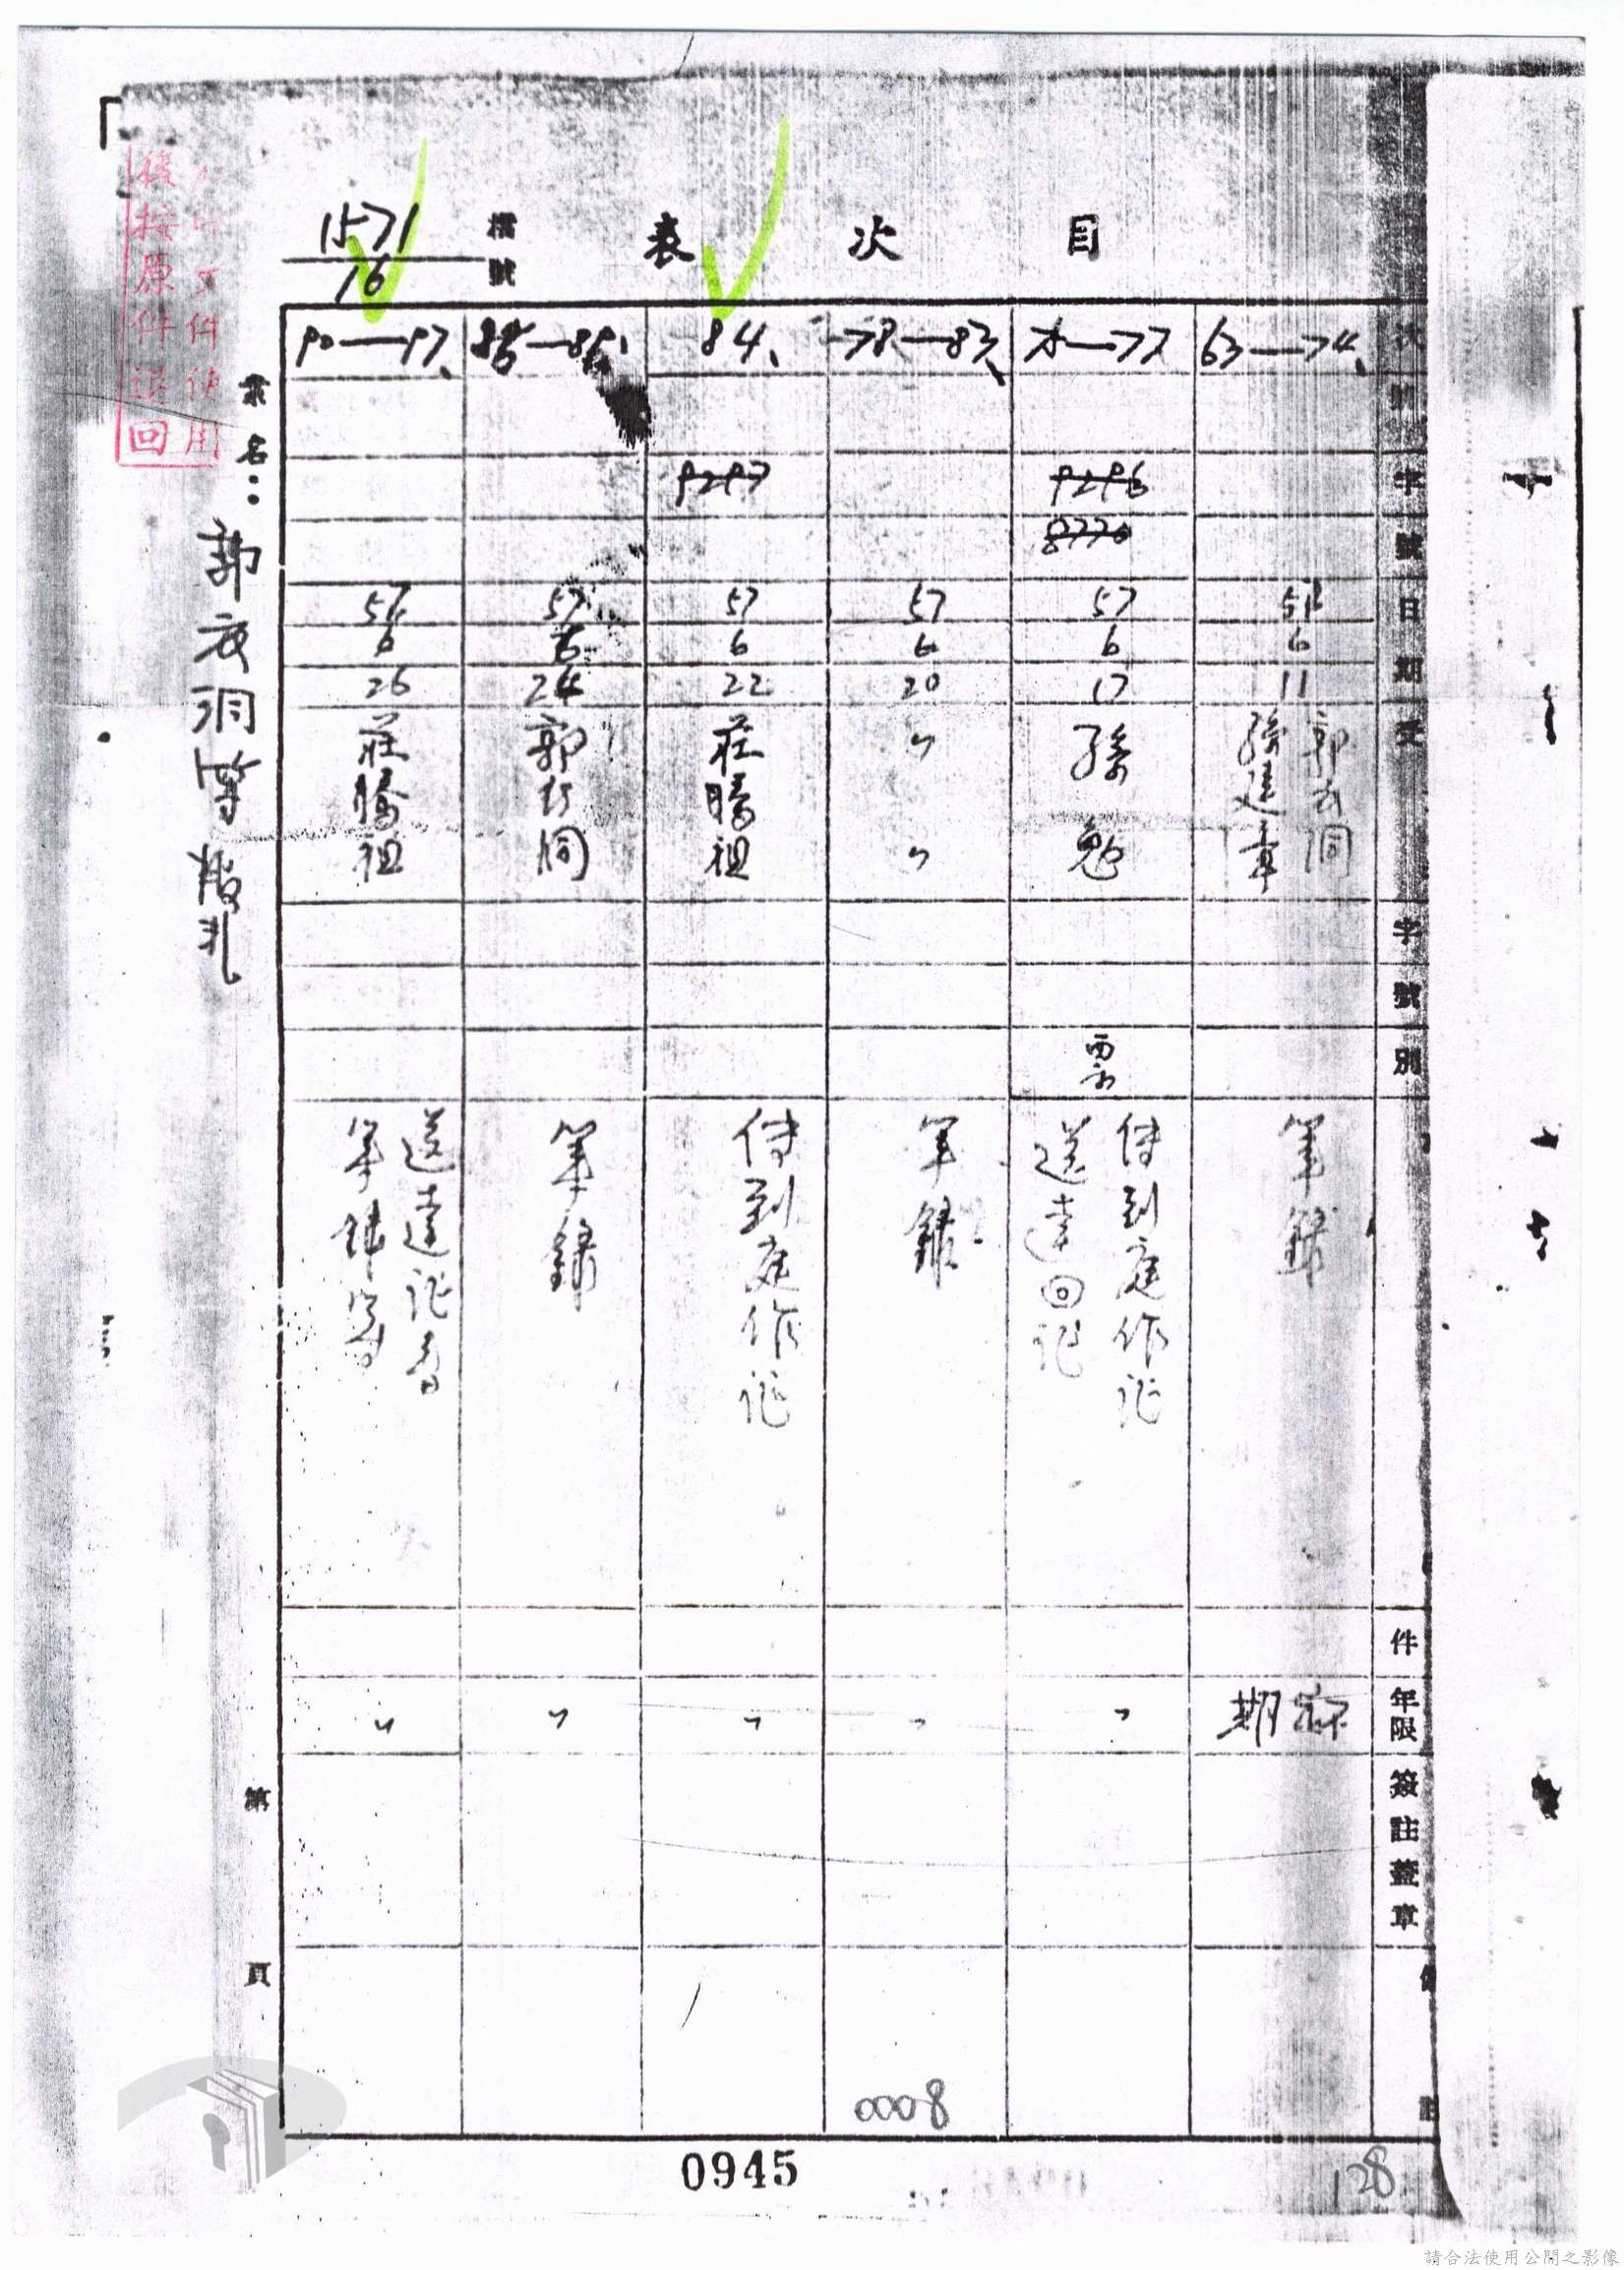 目次表
檔號
1571
16
次
號
字號
日期
受
字號
別
件
年限
簽註蓋章
63—74、
57
6
11
郭衣洞
孫建章
筆錄
永存
75—77
9296
8770
57
6
17
孫勉
票
傳到庭作証
送達回証
〃
78—83、
57
6
20
〃
〃
筆錄
〃
84、
9297
57
6
22
莊腾祖
傳到庭作証
〃
57
6
24
郭衣洞
筆錄
〃
90—97、
57
6
26
莊腾祖
送達証書
〃
案名：郭衣洞等叛亂
第 頁
文件使用
後按原件退回
0008
0945
128
請合法使用公開之影像